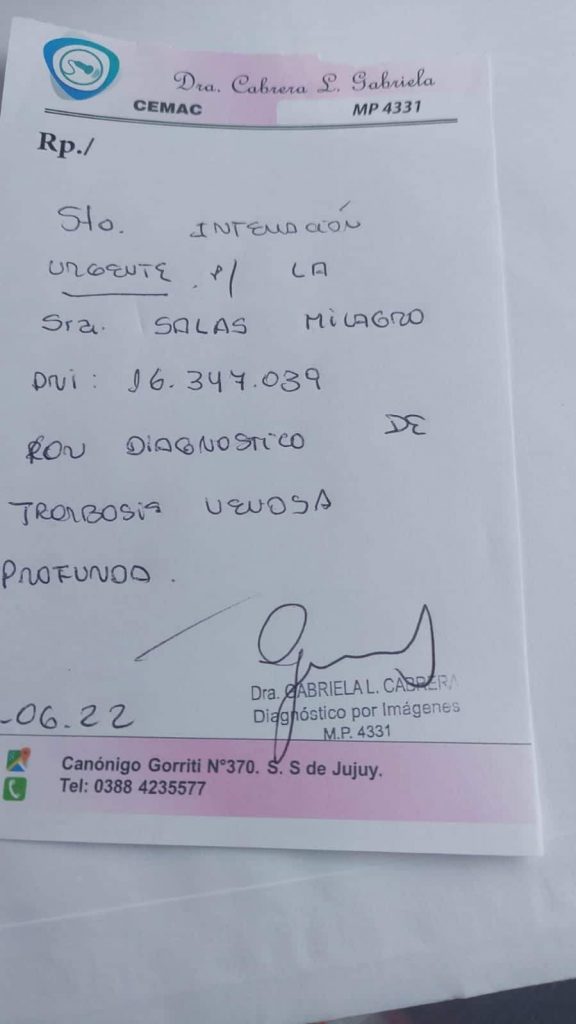 Dra. Cabrera L. Gabriela
CEMAC MP 4331
Rp./
Sto. INTERNACIÓN
URGENTE p/ LA
Sra. SALAS MILAGRO
DNI: 16.347.039
CON DIAGNOSTICO DE
TROMBOSIS VENOSA
PROFUNDA.
Dra. GABRIELA L. CABRERA
Diagnóstico por Imágenes
M.P. 4331
-06.22
Canónigo Gorriti N°370. S. S de Jujuy.
Tel: 0388 4235577